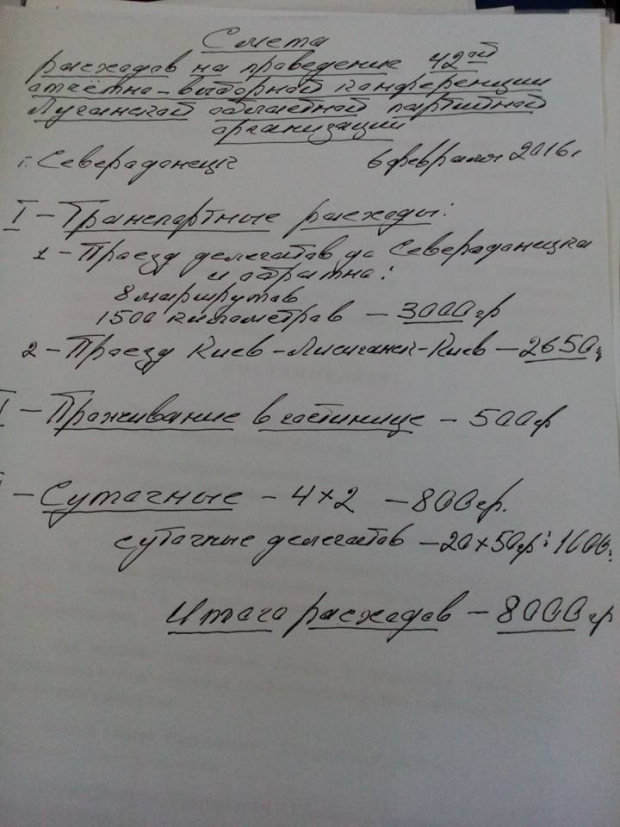 Смета
расходов на проведение 42ой
отчётно-выборной конференции
Луганской областной партийной
организации
г. Северодонецк 6 февраля 2016г
I - Транспортные расходы:
1 - Проезд делегатов до Северодонецка
и обратно:
8 маршрутов
1500 километров - 3000гр
2 - Проезд Киев-Лисичанск-Киев - 2650г
I - Проживание в гостинице - 500гр
- Суточные - 4x2 - 800гр.
суточные делегатов - 20x50гр:
Итого расходов - 8000гр